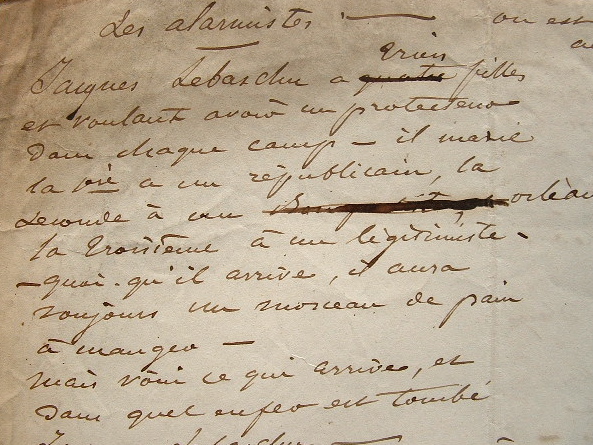 Les alarmistes : — on est
Jacques Lebaschu a trois quatre filles
et voulant avoir un protecteur
dans chaque camp — il marie
la 1re a un républicain, la
seconde à un orléan
la troisième à un légitimiste -
- quoi qu'il arrive, il aura
toujours un morceau de pain
à manger —
mais voici ce qui arrive, et
dans quel enfer est tombé